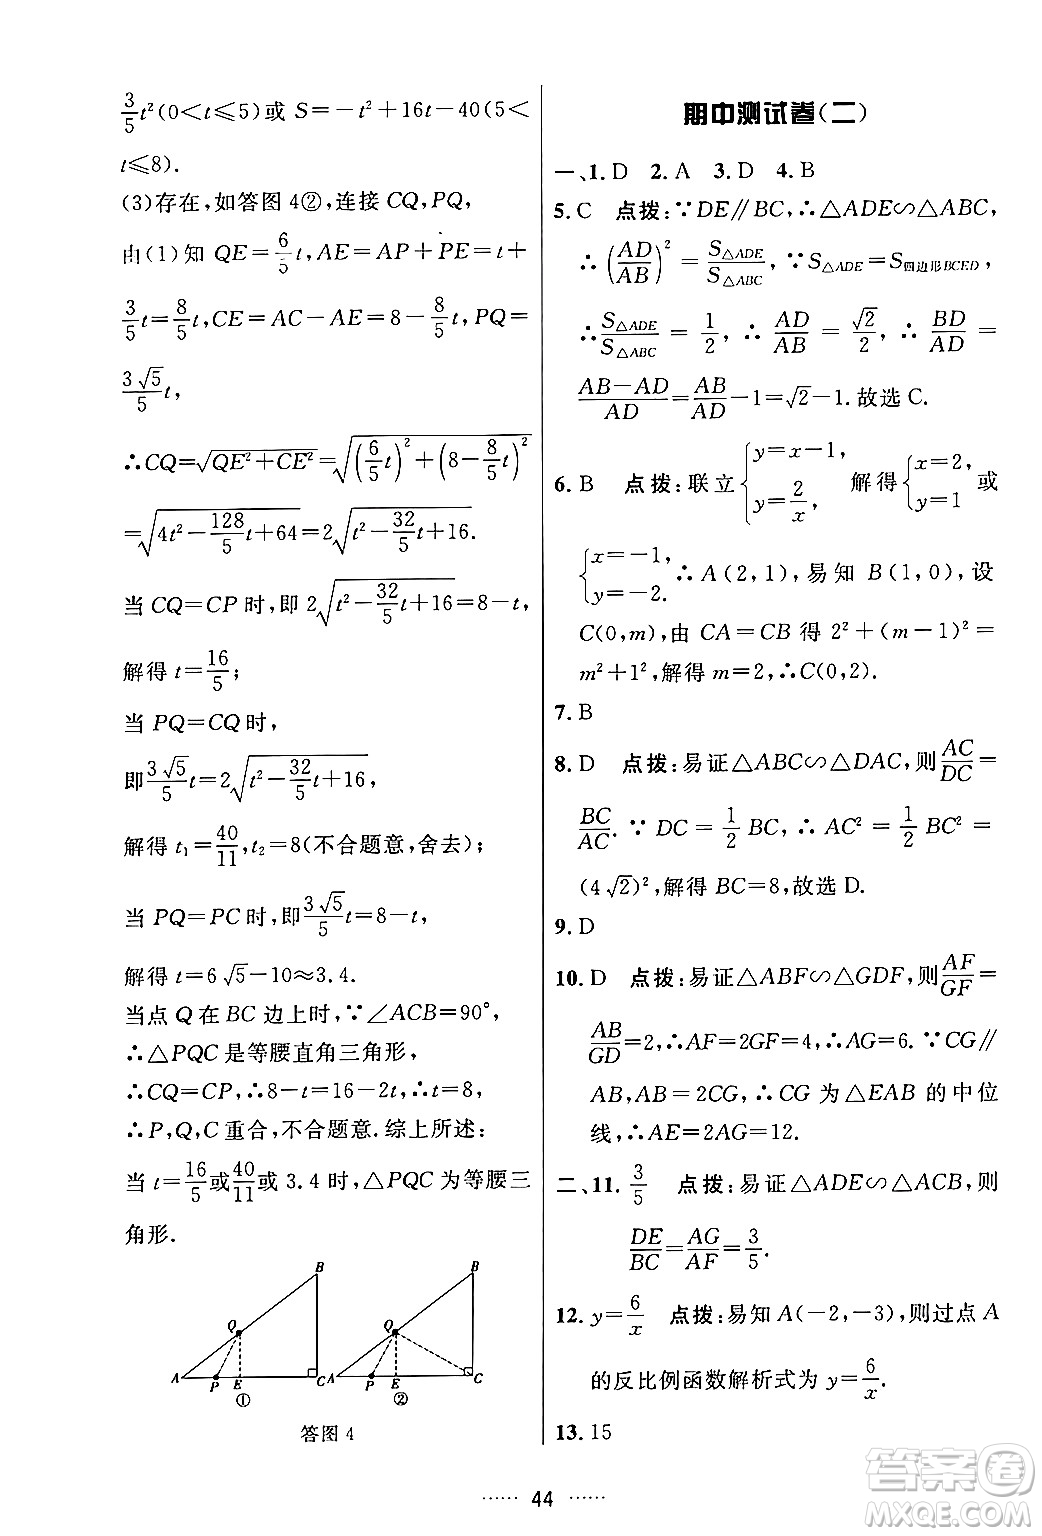 3/5 t²(0<t≤5)或 S=-t²+16t-40(5<
t≤8).
(3)存在,如答图 4②,连接 CQ,PQ,
由(1)知 QE=6/5 t,AE=AP+PE=t+
3/5 t=8/5 t,CE=AC-AE=8-8/5 t,PQ=
3√5/5 t,
∴CQ=√(QE²+CE²)=√((6/5 t)²+(8-8/5 t)²)
=√(4t²-128/5 t+64)=2√(t²-32/5 t+16).
当 CQ=CP 时,即 2√(t²-32/5 t+16)=8-t,
解得 t=16/5;
当 PQ=CQ 时,
即 3√5/5 t=2√(t²-32/5 t+16),
解得 t₁=40/11,t₂=8(不合题意,舍去);
当 PQ=PC 时,即 3√5/5 t=8-t,
解得 t=6√5-10≈3.4.
当点 Q 在 BC 边上时,∵∠ACB=90°,
∴△PQC 是等腰直角三角形,
∴CQ=CP,∴8-t=16-2t,∴t=8,
∴P,Q,C 重合,不合题意.综上所述:
当 t=16/5 或 40/11 或 3.4 时,△PQC 为等腰三
角形.
B
Q
A P E C
①
B
Q
A P E C
②
答图 4
期中测试卷(二)
一、1. D 2. A 3. D 4. B
5. C 点拨:∵DE∥BC,∴△ADE∽△ABC,
∴(AD/AB)²=S△ADE/S△ABC,∵S△ADE=S四边形BCED,
∴S△ADE/S△ABC=1/2,∴AD/AB=√2/2,∴BD/AD=
(AB-AD)/AD=AB/AD-1=√2-1.故选 C.
6. B 点拨:联立{y=x-1, y=2/x, 解得{x=2, y=1 或
{x=-1, y=-2. ∴A(2,1),易知 B(1,0),设
C(0,m),由 CA=CB 得 2²+(m-1)²=
m²+1²,解得 m=2,∴C(0,2).
7. B
8. D 点拨:易证△ABC∽△DAC,则AC/DC=
BC/AC.∵DC=1/2 BC,∴AC²=1/2 BC²=
(4√2)²,解得 BC=8,故选 D.
9. D
10. D 点拨:易证△ABF∽△GDF,则AF/GF=
AB/GD=2,∴AF=2GF=4,∴AG=6.∵CG∥
AB,AB=2CG,∴CG 为△EAB 的中位
线,∴AE=2AG=12.
二、11. 3/5 点拨:易证△ADE∽△ACB,则
DE/BC=AG/AF=3/5.
12. y=6/x 点拨:易知 A(-2,-3),则过点 A
的反比例函数解析式为 y=6/x.
13. 15
······ 44 ······
答案圈
MXQE.COM